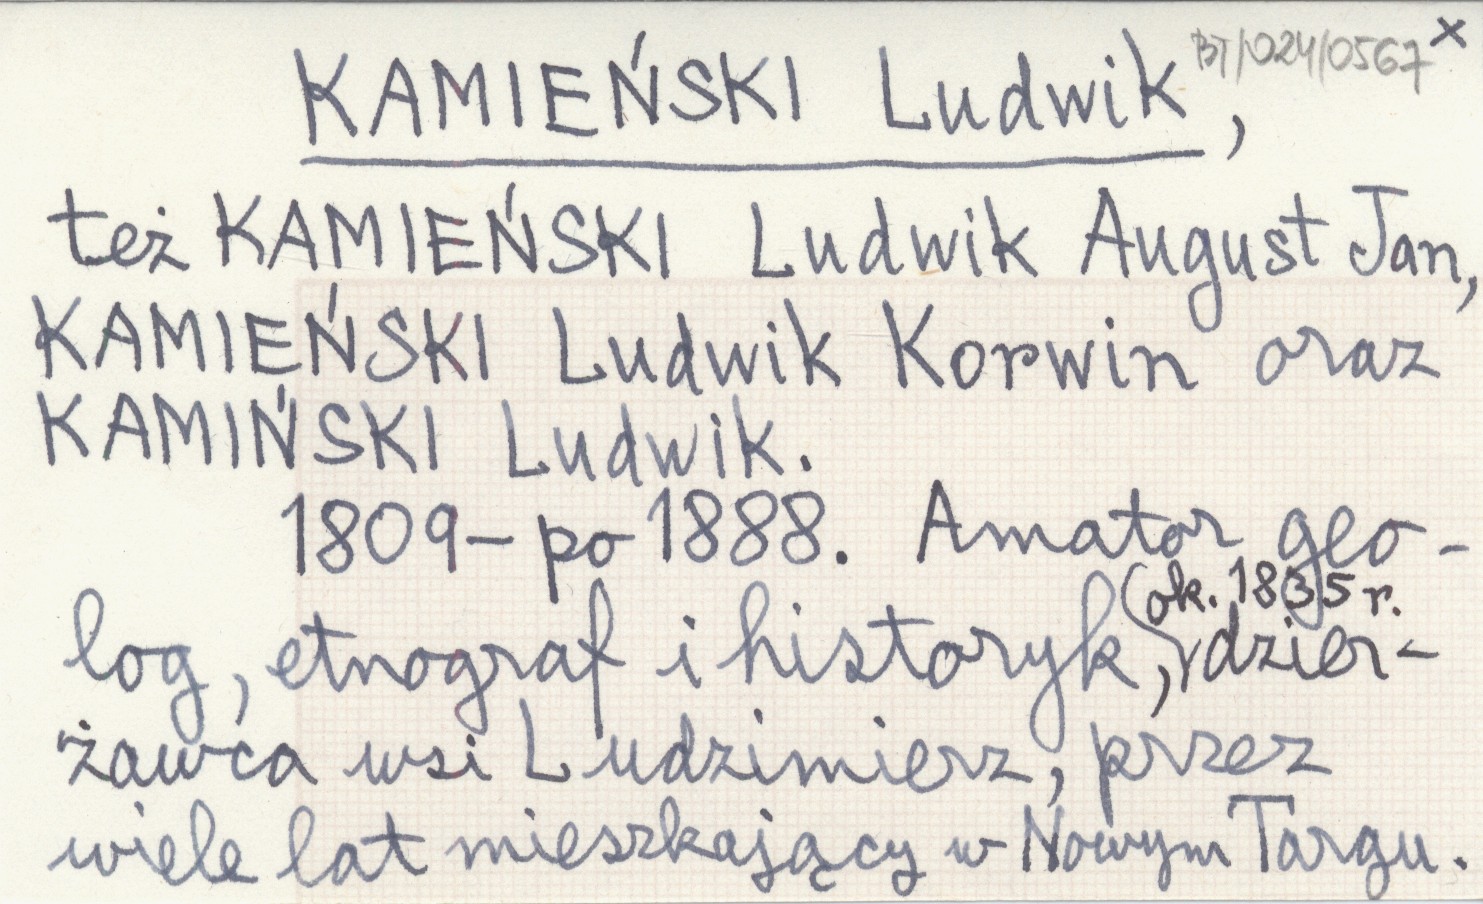 BT/024/0567 x
KAMIEŃSKI Ludwik,
też KAMIEŃSKI Ludwik August Jan,
KAMIEŃSKI Ludwik Korwin oraz
KAMIŃSKI Ludwik.
1809 – po 1888. Amator geo-
log, etnograf i historyk, (ok. 1835 r.
dzier-
żawca wsi Ludzimierz, przez
wiele lat mieszkający w Nowym Targu.